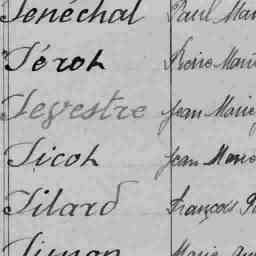 Sénéchal Paul Mar
Séroh Pierre Marie
Sevestre Jean Marie
Sicoh Jean Marie
Silard François P
Simon Marie